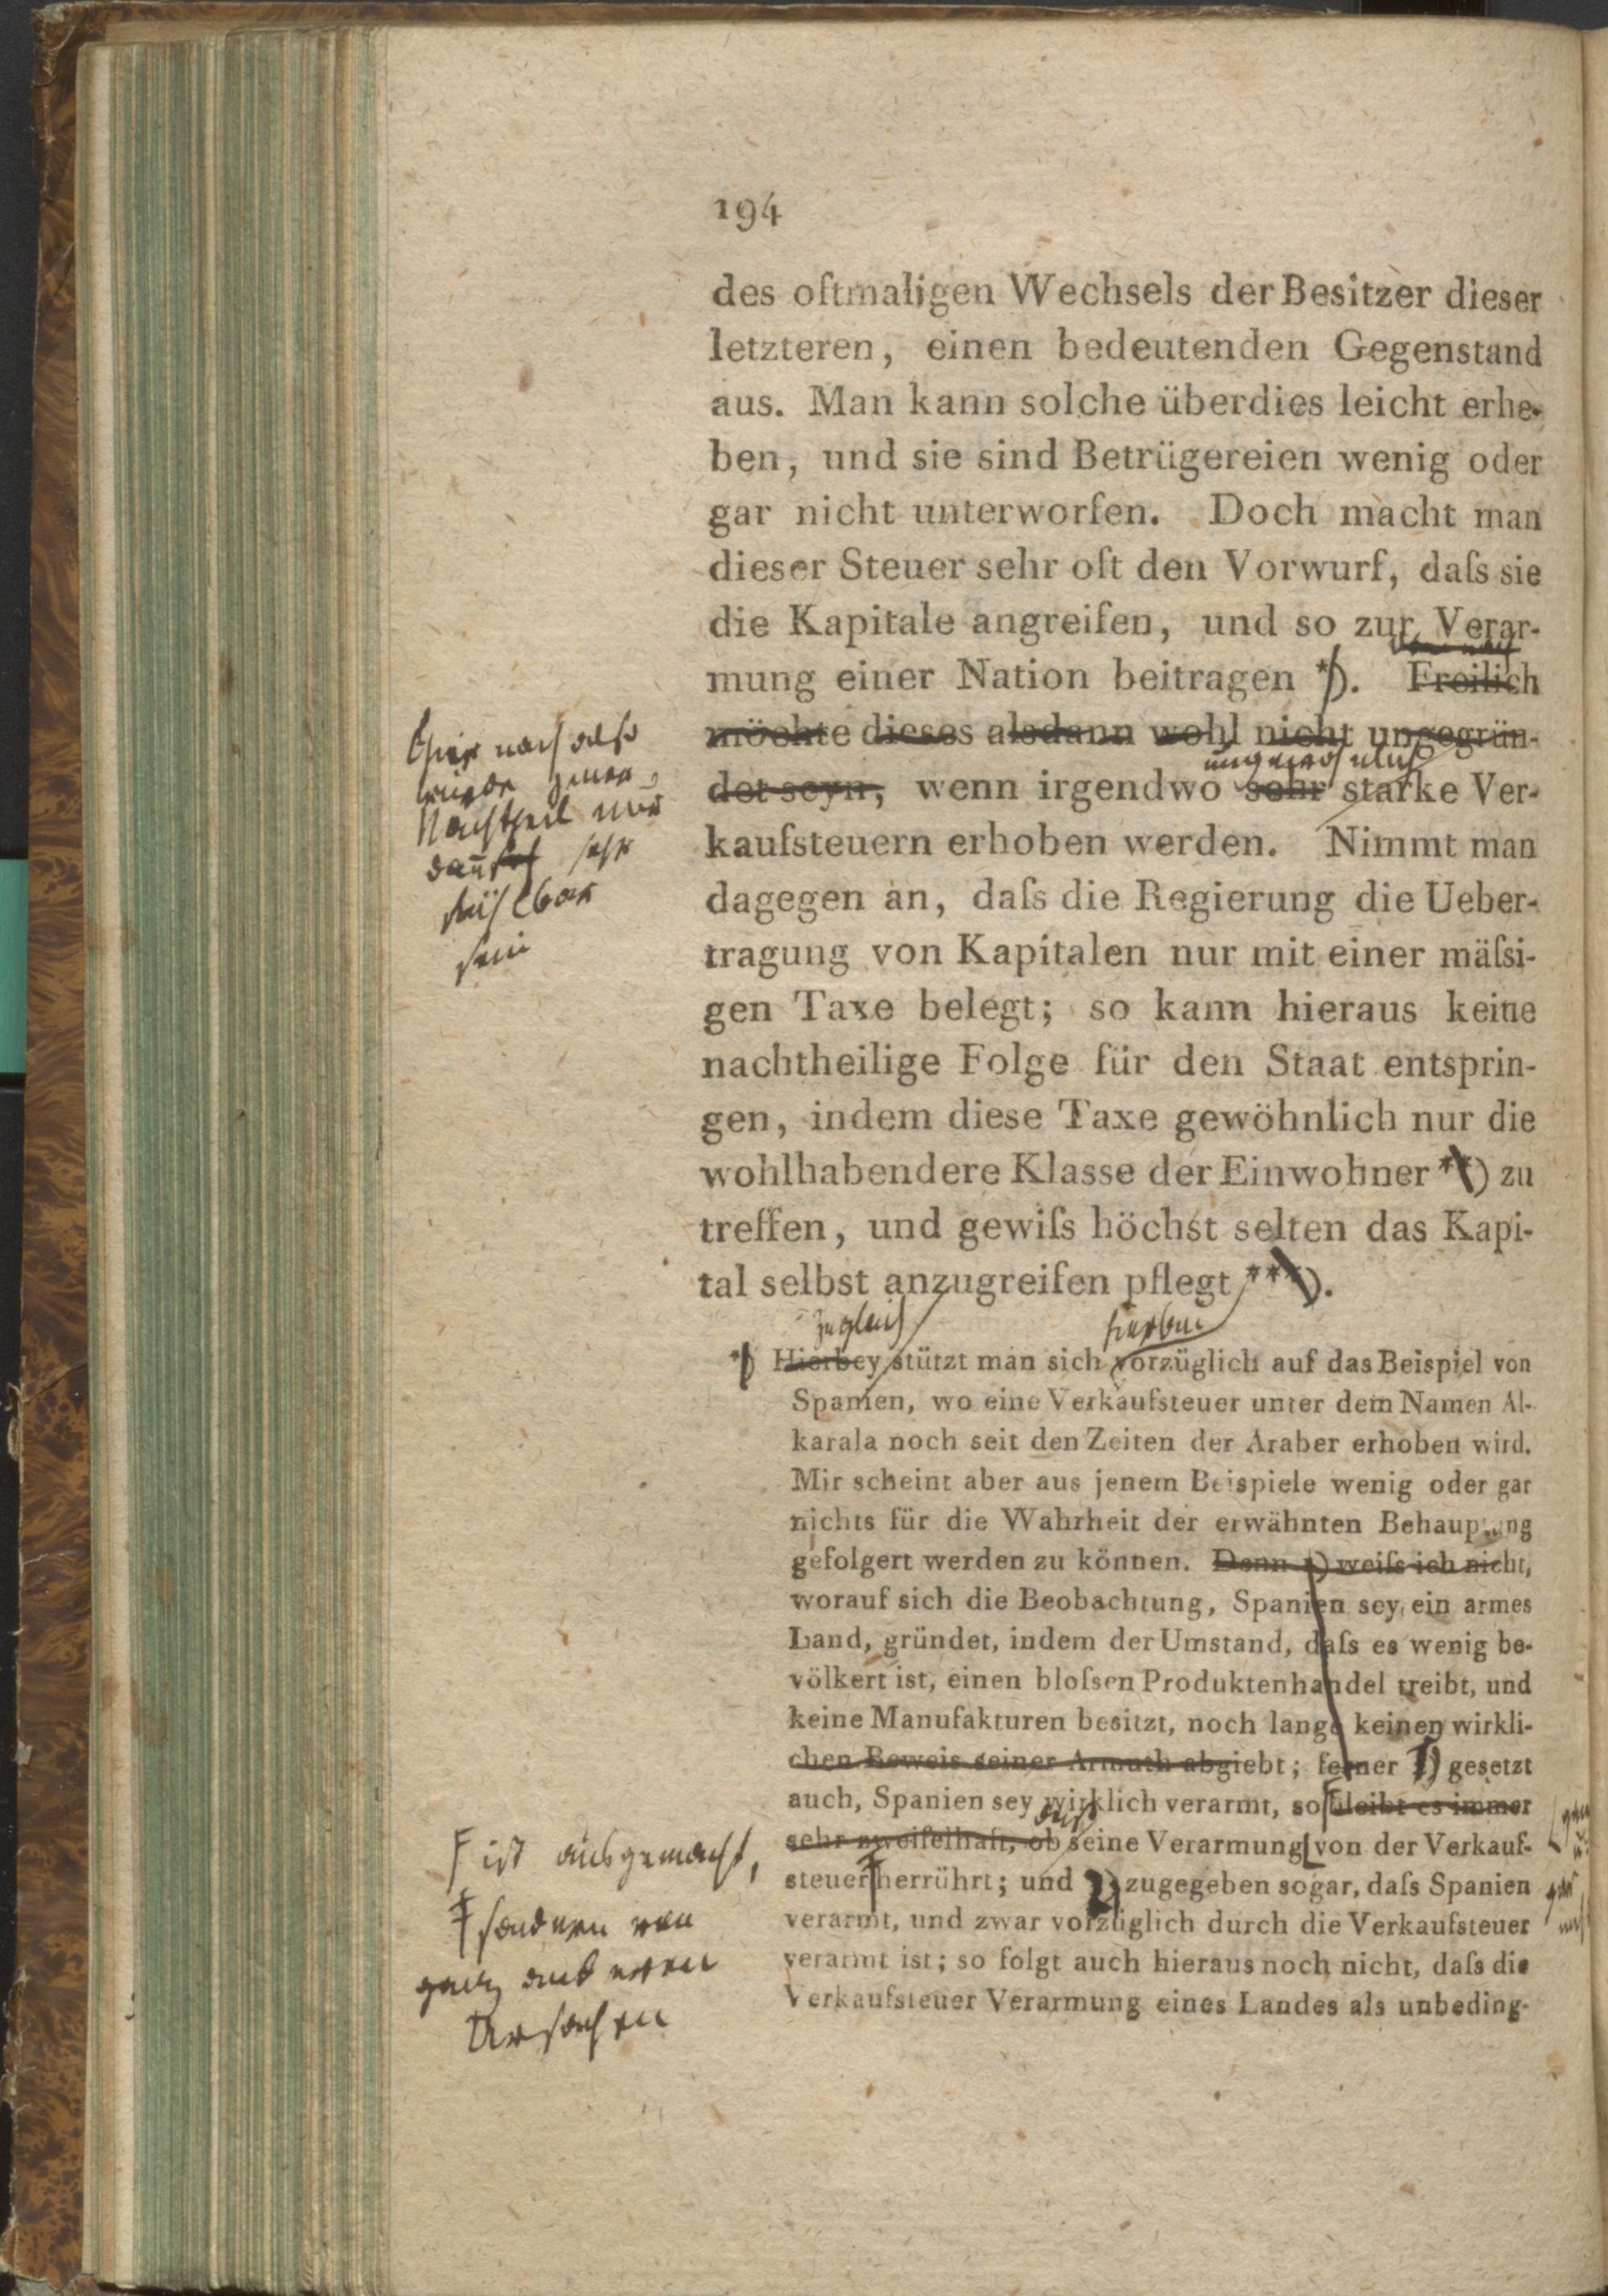 194
des oftmaligen Wechsels der Besitzer dieser
letzteren, einen bedeutenden Gegenstand
aus. Man kann solche überdies leicht erhe-
ben, und sie sind Betrügereien wenig oder
gar nicht unterworfen. Doch macht man
dieser Steuer sehr oft den Vorwurf, daſs sie
die Kapitale angreifen, und so zur Verar-
mung einer Nation beitragen *). Freilich
möchte dieses alsdann wohl nicht ungegrün-
det seyn, wenn irgendwo sehr starke Ver-
kaufsteuern erhoben werden. Nimmt man
dagegen an, daſs die Regierung die Ueber-
tragung von Kapitalen nur mit einer mäſsi-
gen Taxe belegt; so kann hieraus keine
nachtheilige Folge für den Staat entsprin-
gen, indem diese Taxe gewöhnlich nur die
wohlhabendere Klasse der Einwohner **) zu
treffen, und gewiſs höchst selten das Kapi-
tal selbst anzugreifen pflegt ***).
zugleich hierbei
*) Hierbey stützt man sich vorzüglich auf das Beispiel von
Spanien, wo eine Verkaufsteuer unter dem Namen Al-
karala noch seit den Zeiten der Araber erhoben wird.
Mir scheint aber aus jenem Beispiele wenig oder gar
nichts für die Wahrheit der erwähnten Behauptung
gefolgert werden zu können. Denn 1) weiſs ich nicht,
worauf sich die Beobachtung, Spanien sey ein armes
Land, gründet, indem der Umstand, daſs es wenig be-
völkert ist, einen bloſsen Produktenhandel treibt, und
keine Manufakturen besitzt, noch lange keinen wirkli-
chen Beweis seiner Armuth abgiebt; ferner 1) gesetzt
auch, Spanien sey wirklich verarmt, so bleibt es immer
sehr zweifelhaft, ob seine Verarmung von der Verkauf-
steuer herrührt; und 2) zugegeben sogar, daſs Spanien
verarmt, und zwar vorzüglich durch die Verkaufsteuer
verarmt ist; so folgt auch hieraus noch nicht, daſs die
Verkaufsteuer Verarmung eines Landes als unbeding-
Hiernach also
würde
Nachtheil nur
dann sehr
sein
ist ausgemacht,
sondern von
ganz anderen
Ursachen